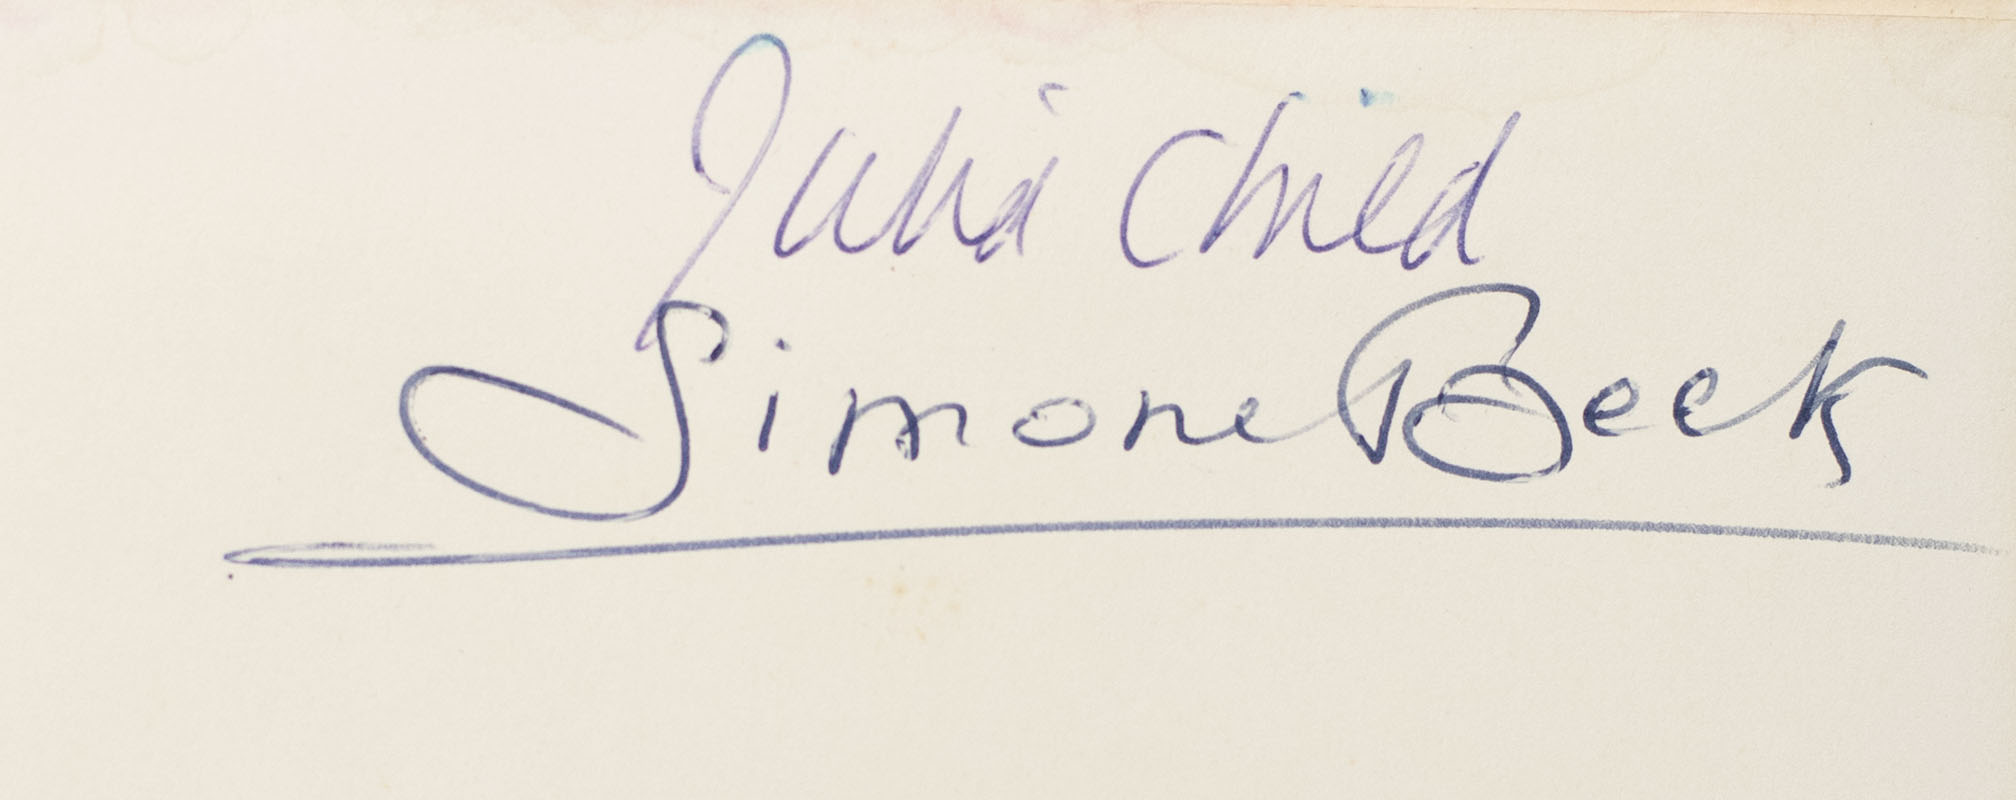 Julia Child
Simone Beck